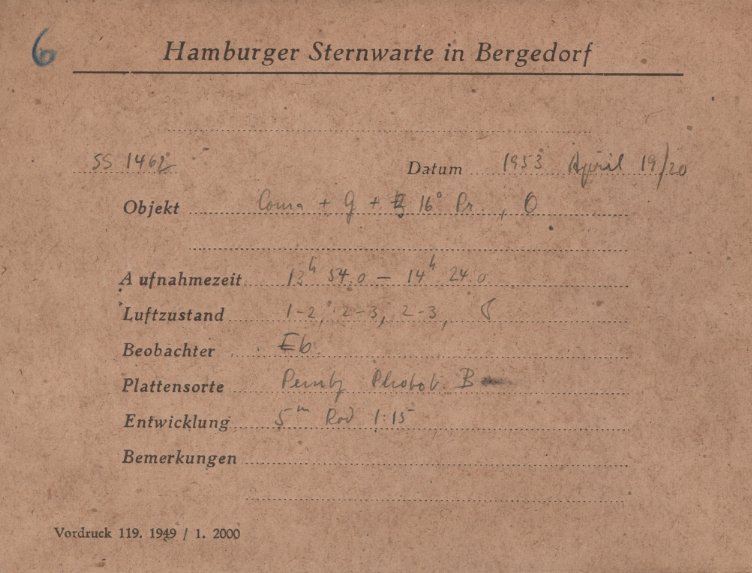 6 Hamburger Sternwarte in Bergedorf
SS 1462 Datum 1953 April 19/20
Objekt Coma + g + 16° Pr., O
Aufnahmezeit 13h 54.0 — 14h 24.0
Luftzustand 1-2, 2-3, 2-3,
Beobachter Eb.
Plattensorte Perutz Photot. B
Entwicklung 5m Rod 1:15
Bemerkungen
Vordruck 119. 1949 / 1. 2000